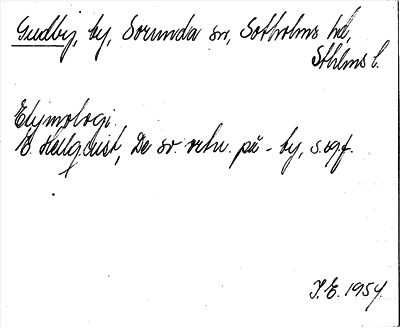 Gudby, by, Sorunda sn, Sotholms hd,
Sthlms l.
Etymologi.
E. Hellquist, De sv. ortn. på -by, s. 9 f.
I. E. 1954.